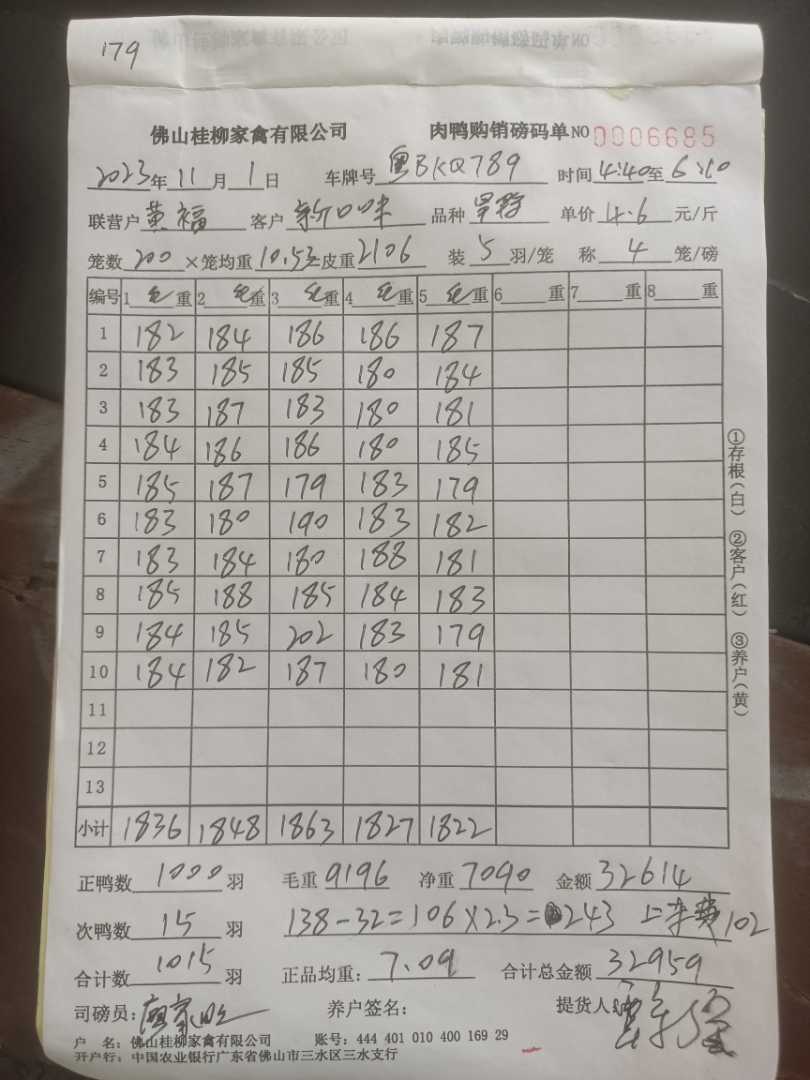 179
佛山桂柳家禽有限公司 肉鸭购销磅码单 NO 0006685
2023年11月1日 车牌号 粤BKQ789 时间 4:40至6:10
联营户 黄福 客户 新口味 品种 单价 4.6 元/斤
笼数 200 ×笼均重 10.53 皮重 2106 装 5 羽/笼 称 4 笼/磅
编号 1 毛 重 2 毛 重 3 毛 重 4 毛 重 5 毛 重 6 重 7 重 8 重
1 182 184 186 186 187
2 183 185 185 180 184
3 183 187 183 180 181
4 184 186 186 180 185
5 185 187 179 183 179
6 183 180 190 183 182
7 183 184 180 188 181
8 185 188 185 184 183
9 184 185 202 183 179
10 184 182 187 180 181
11
12
13
小计 1836 1848 1863 1827 1822
①存根(白) ②客户(红) ③养户(黄)
正鸭数 1000 羽 毛重 9196 净重 7090 金额 32614
次鸭数 15 羽 138-32=106×2.3=243 上车费102
合计数 1015 羽 正品均重: 7.09 合计总金额 32959
司磅员: 养户签名: 提货人:
户 名: 佛山桂柳家禽有限公司 账号: 444 401 010 400 169 29
开户行: 中国农业银行广东省佛山市三水区三水支行